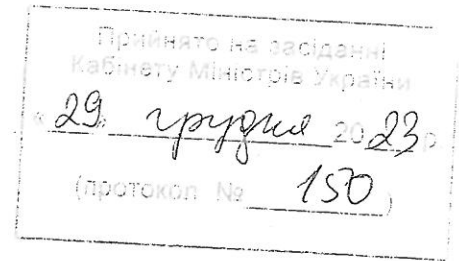 Прийнято на засіданні
Кабінету Міністрів України
« 29 » грудня 2023 р
(протокол № 150)